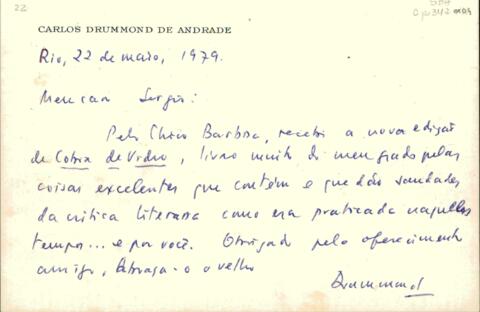 22
CARLOS DRUMMOND DE ANDRADE
Rio, 22 de maio, 1979.
Meu caro Sergio:
Pelo Chico Barbosa, recebi a nova edição
de Cobra de Vidro, livro muito do meu grado pelas
coisas excelentes que contém e que dão saudades
da crítica literaria como era praticada naqueles
tempos... e por você. Obrigado pelo oferecimento
amigo. Abraça-o o velho
Drummond